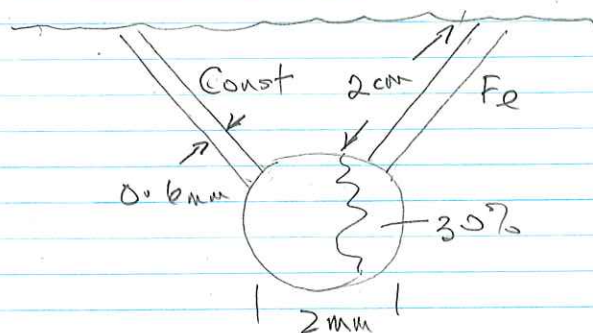 Const
2cm
Fe
0.6mm
30%
2mm